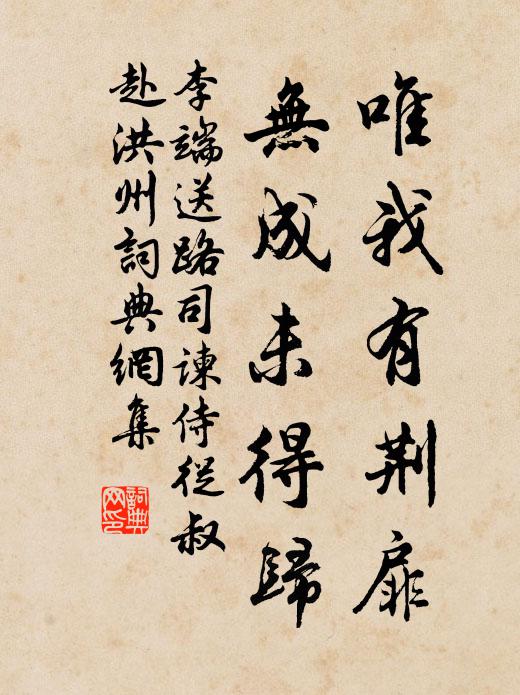 唯我有荆扉
無成未得歸
李端送路司諫侍從叔
赴洪州詞典網集
詞典網印